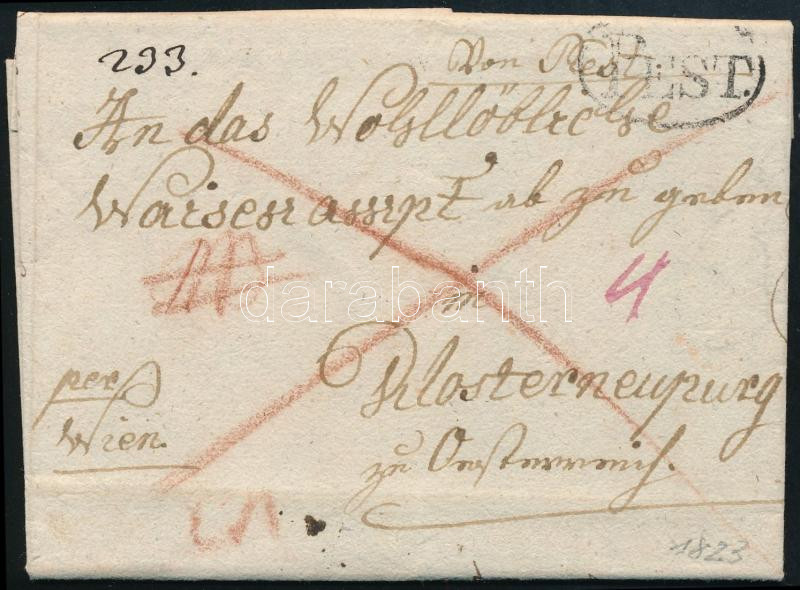 293.
Von Pest
PEST.
An das Wohllöbliche
Waisenampt ab zu geben
in
4
Klosterneupurg
per
Wien.
zu Oesterreich.
1823
darabanth